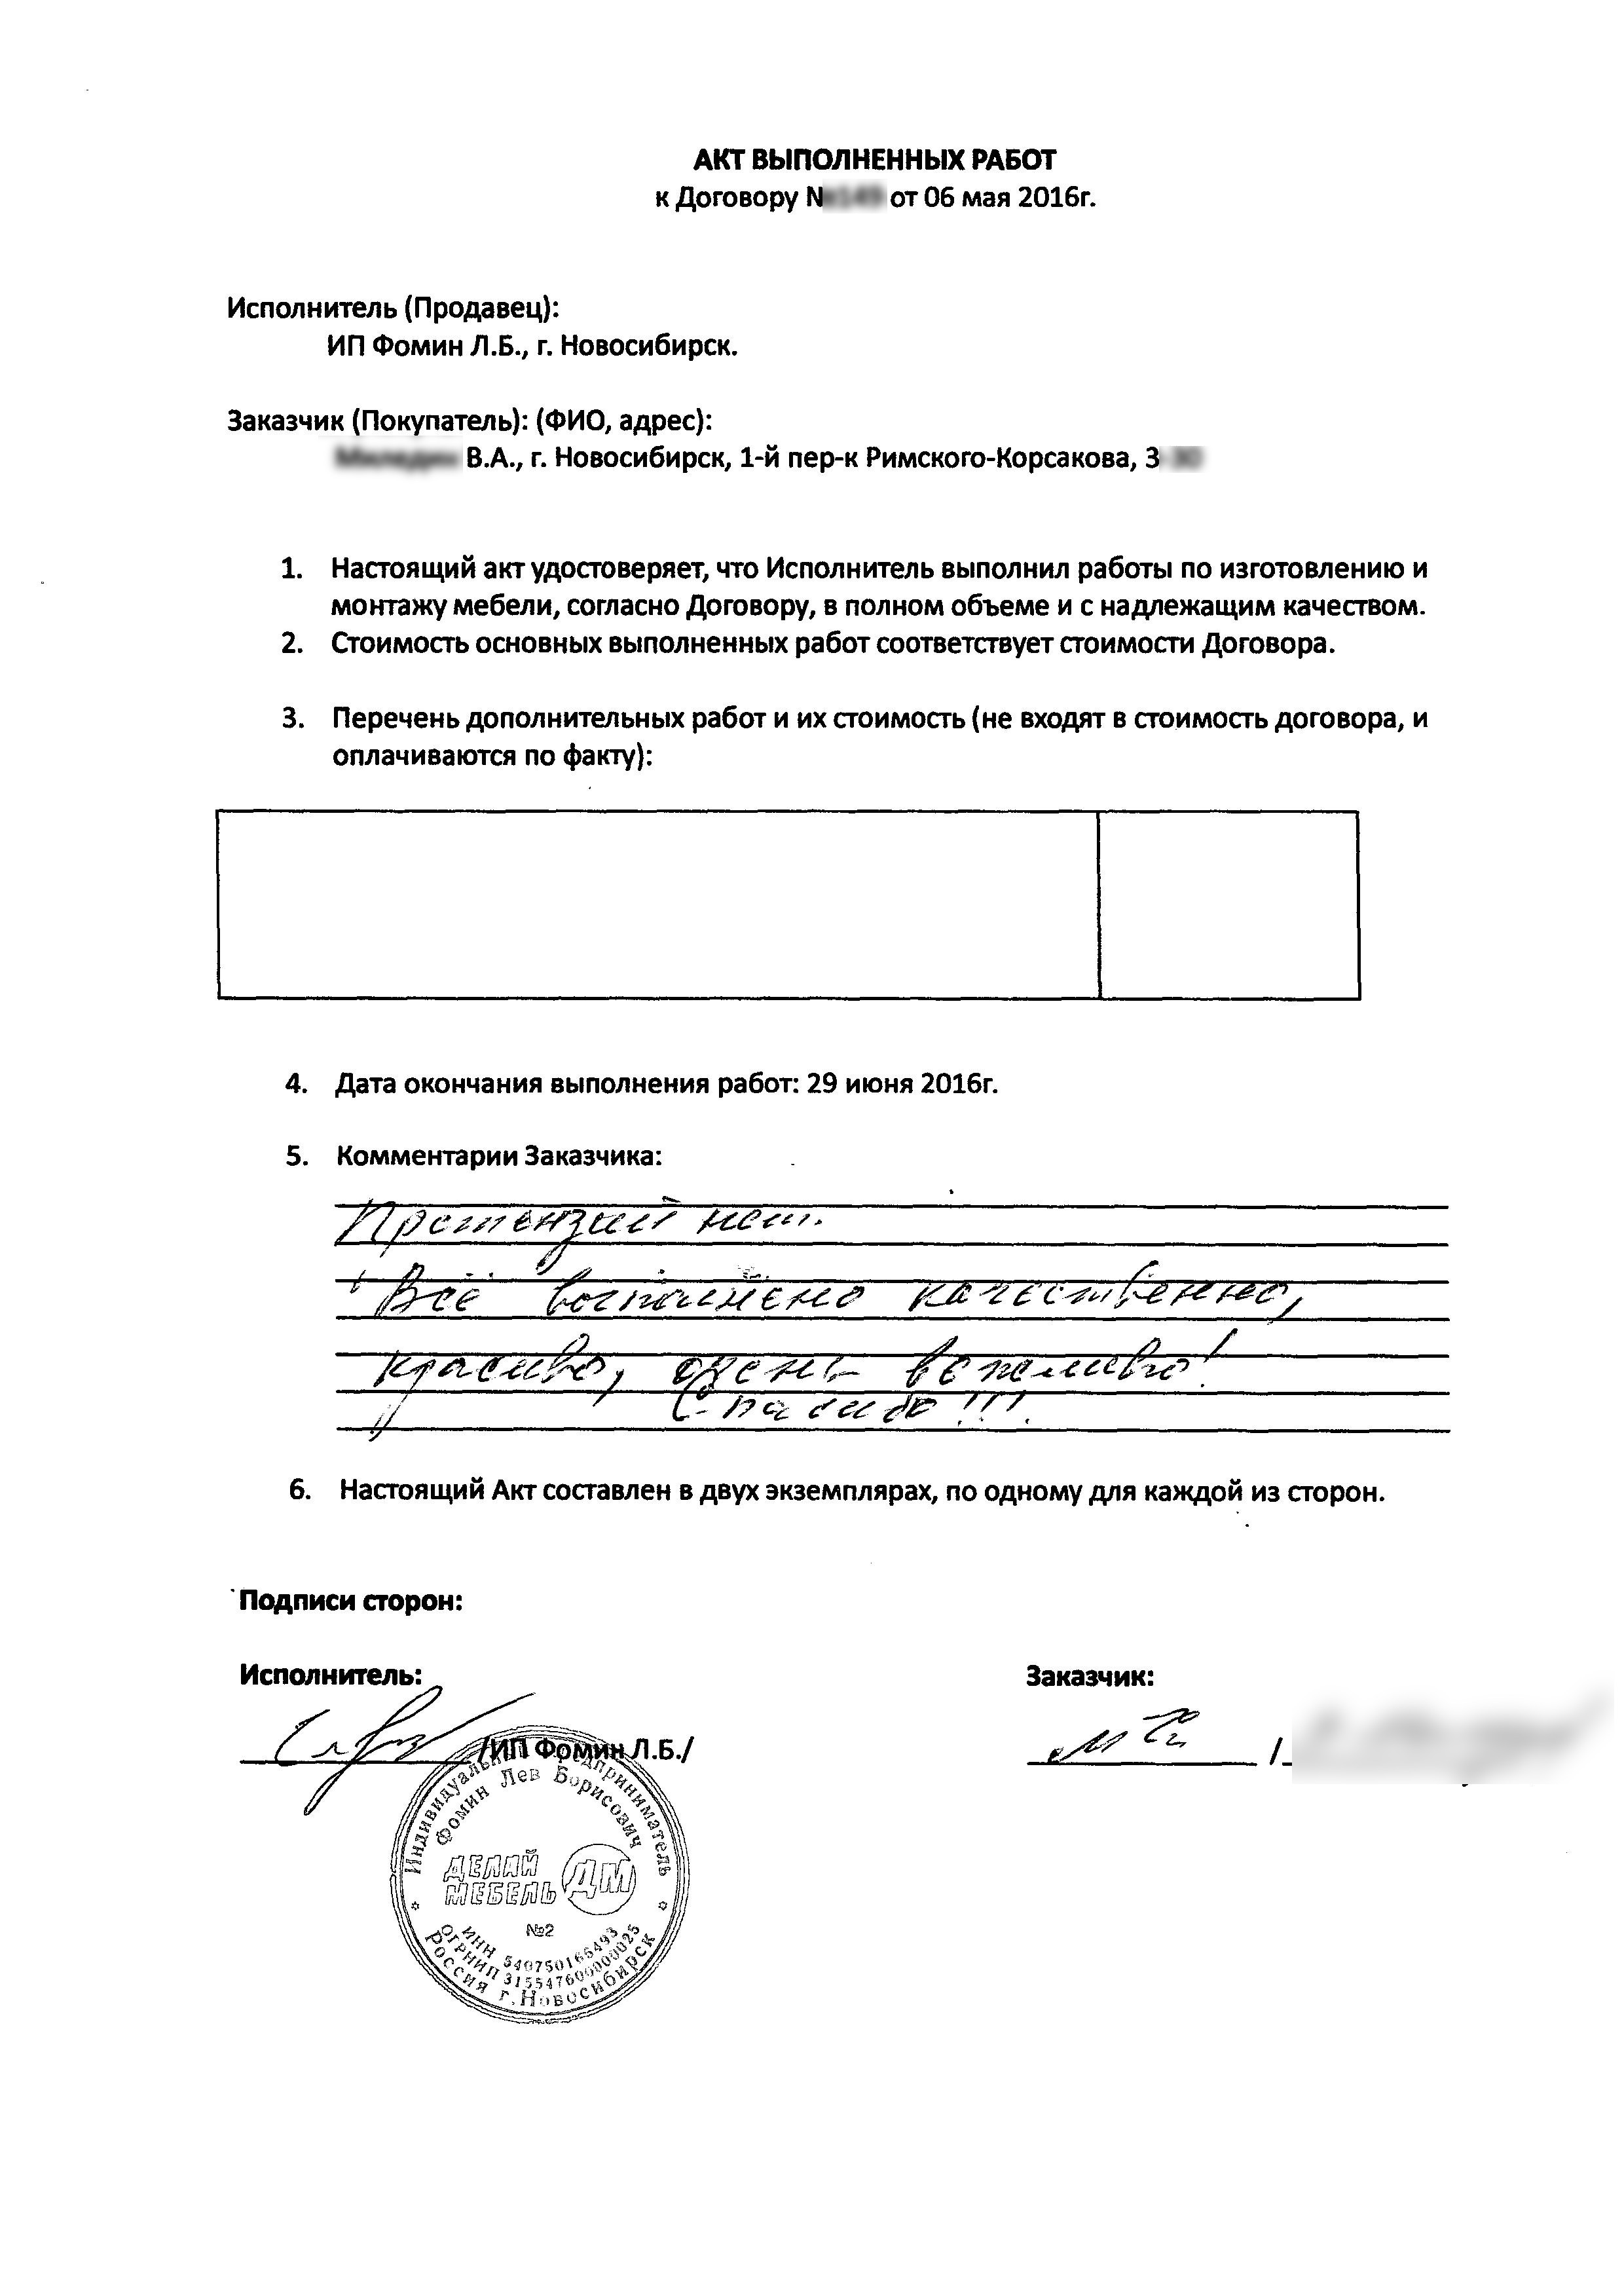 АКТ ВЫПОЛНЕННЫХ РАБОТ
к Договору № от 06 мая 2016г.
Исполнитель (Продавец):
ИП Фомин Л.Б., г. Новосибирск.
Заказчик (Покупатель): (ФИО, адрес):
В.А., г. Новосибирск, 1-й пер-к Римского-Корсакова, 3
1. Настоящий акт удостоверяет, что Исполнитель выполнил работы по изготовлению и
монтажу мебели, согласно Договору, в полном объеме и с надлежащим качеством.
2. Стоимость основных выполненных работ соответствует стоимости Договора.
3. Перечень дополнительных работ и их стоимость (не входят в стоимость договора, и
оплачиваются по факту):
4. Дата окончания выполнения работ: 29 июня 2016г.
5. Комментарии Заказчика:
Претензий нет.
Всё выполнено качественно,
красиво, очень вежливо!
Спасибо!!!
6. Настоящий Акт составлен в двух экземплярах, по одному для каждой из сторон.
Подписи сторон:
Исполнитель: Заказчик:
/ИП Фомин Л.Б./ /
Индивидуальный предприниматель
Фомин Лев Борисович
ДЕЛАЙ
МЕБЕЛЬ
ДМ
№2
ИНН 540750165493
ОГРНИП 315547600000025
Россия г.Новосибирск